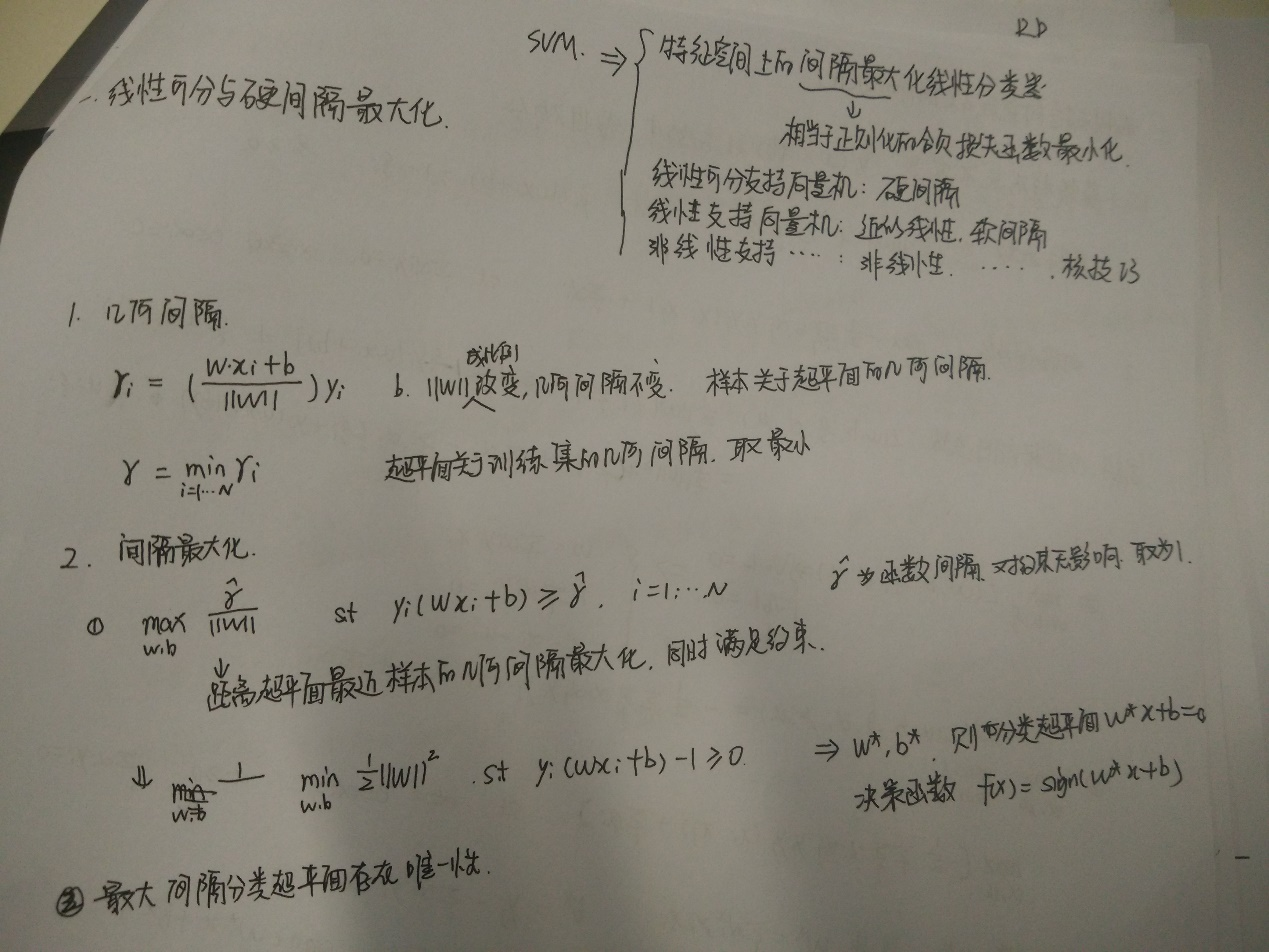 RD
SVM. ⇒ { 特征空间上的间隔最大化线性分类器
↓
相当于正则化的合页损失函数最小化.
一. 线性可分与硬间隔最大化.
线性可分支持向量机: 硬间隔
线性支持向量机: 近似线性. 软间隔
非线性支持 ····: 非线性. ····. 核技巧
1. 几何间隔.
γi = (w·xi+b / ||w||) yi b. ||w|| 成比例改变, 几何间隔不变. 样本关于超平面的几何间隔.
γ = min i=1···N γi 超平面关于训练集的几何间隔. 取最小
2. 间隔最大化.
① max w.b γ̂ / ||w|| s.t yi(wxi+b) ≥ γ̂. i=1,···N γ̂为函数间隔. 对结果无影响. 取为1.
↓
距离超平面最近样本的几何间隔最大化, 同时满足约束.
⇓ min w.b 1/ min w.b ½||w||². s.t yi(wxi+b)-1≥0. ⇒ w*, b*. 则有分类超平面w*x+b=0
决策函数 f(x) = sign(w*x+b)
② 最大间隔分类超平面存在唯一性.